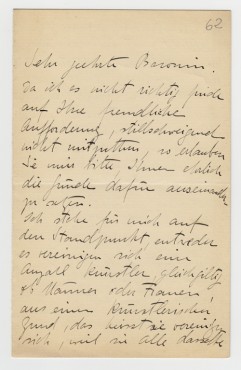 62
Sehr geehrte Baronin.
Da ich es nicht richtig finde
auf Ihre freundliche
Aufforderung, stillschweigend
nicht mitzuthun, so erlauben
Sie mir bitte Ihnen ehrlich
die Gründe dafür auseinander
zu setzen.
Ich stehe für mich auf
den Standpunkt, entweder
es vereinigen sich eine
Anzahl Künstler, gleichgiltig
ob Männer oder Frauen,
aus einem künstlerischen
Grund, das heisst sie vereinigen
sich, weil sie alle dasselbe